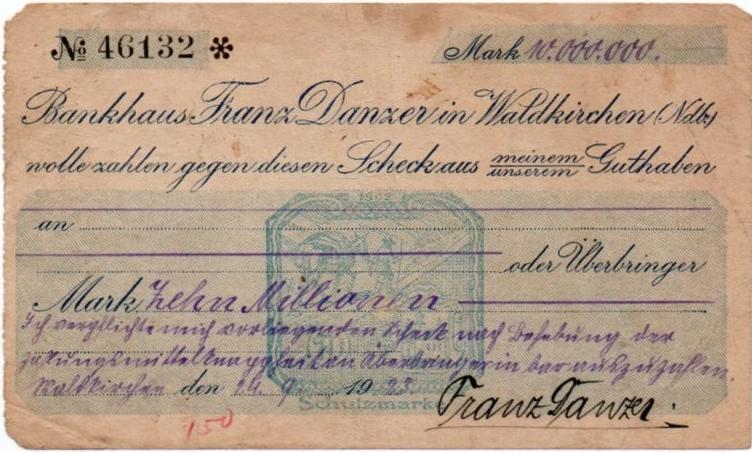 № 46132 *
Mark 10.000.000.
Bankhaus Franz Danzer in Waldkirchen (Ndby)
wolle zahlen gegen diesen Scheck aus meinem unserem Guthaben
1902
an
oder Überbringer
Mark Zehn Millionen
Ich verpflichte mich vorliegenden Scheck nach Behebung der
zalungsmittelknappheit an Überbringer in bar auszuzahlen.
Waldkirchen den 19 23
Schutzmarke
Franz Danzer.
150